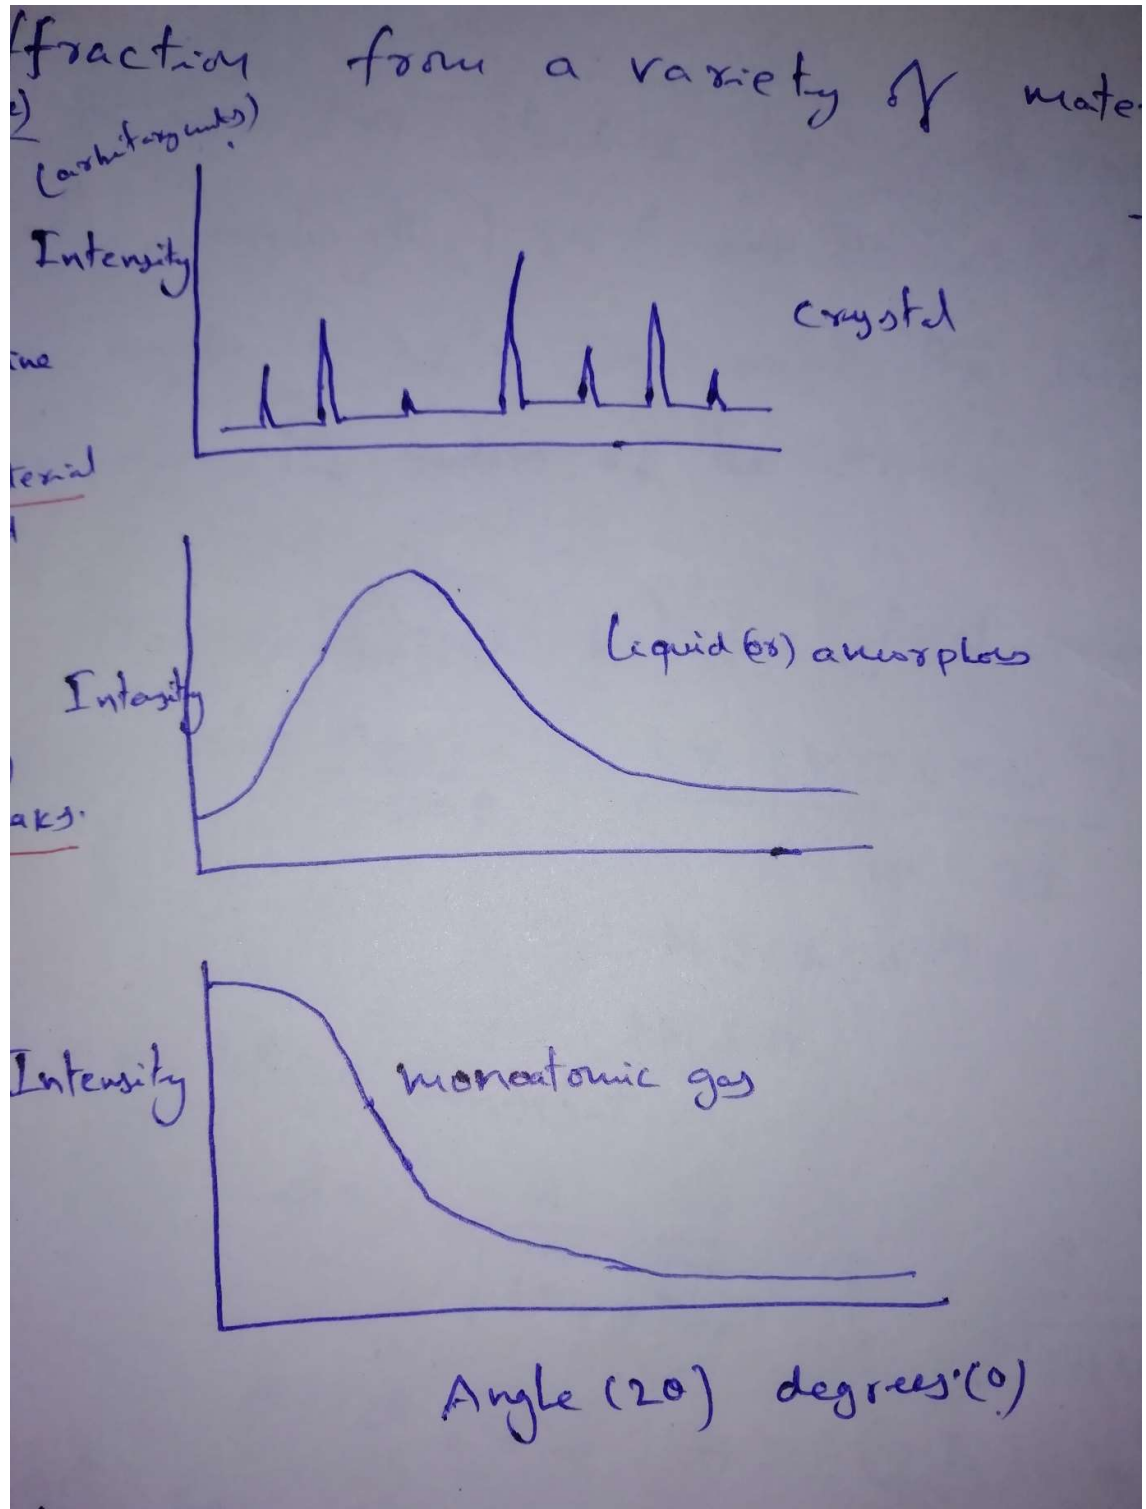 ffraction from a variety of mate
(arbitary units)
Intensity
crystal
ine
terial
Liquid (or) amorphos
Intasity
aks.
Intensity
monoatomic gas
Angle (2θ) degrees (0)